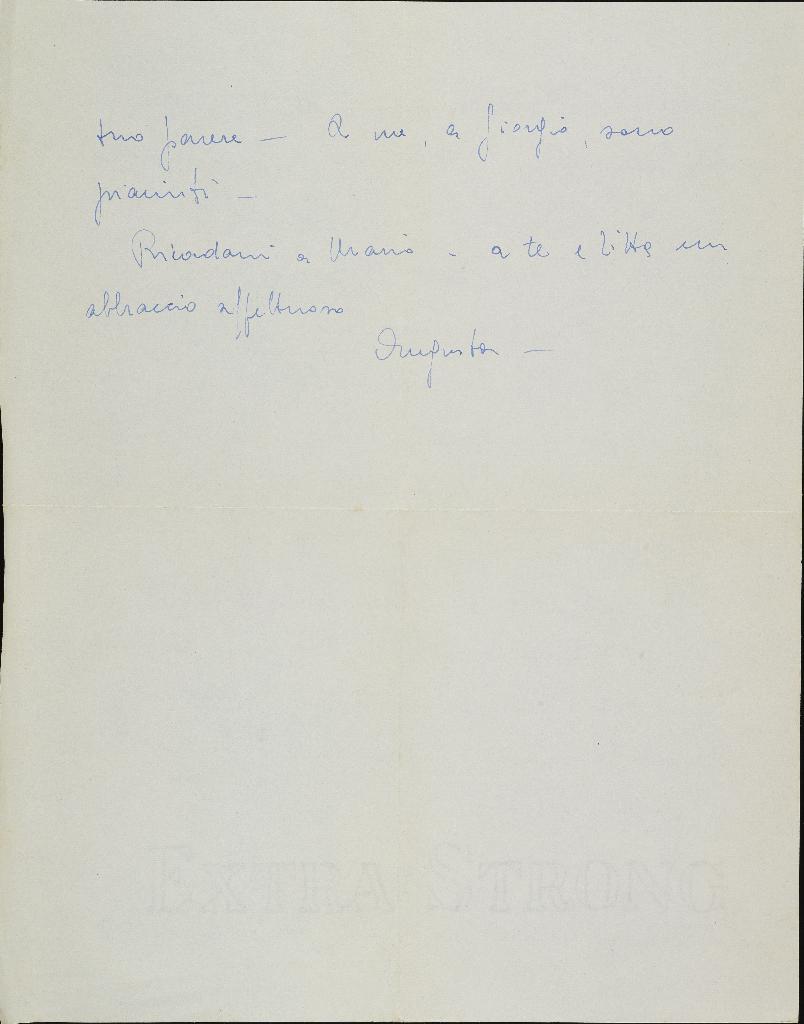 tuo parere — A me, a Giorgio, sono
piaciuti —
Ricordami a Mario - a te e Titta un
abbraccio affettuoso
Augusta —
EXTRA STRONG